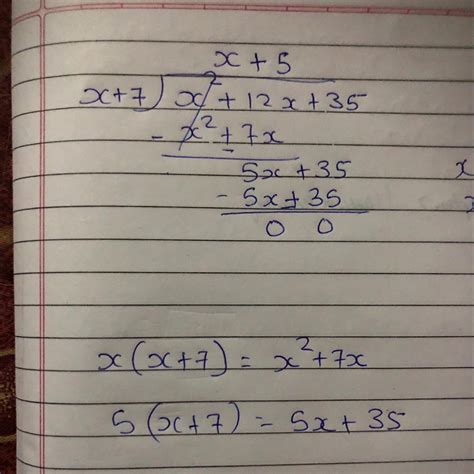 x + 5
x+7 ) x² + 12x + 35
- x² + 7x
5x + 35
- 5x + 35
0 0
x
x(x+7) = x²+7x
5(x+7) = 5x + 35